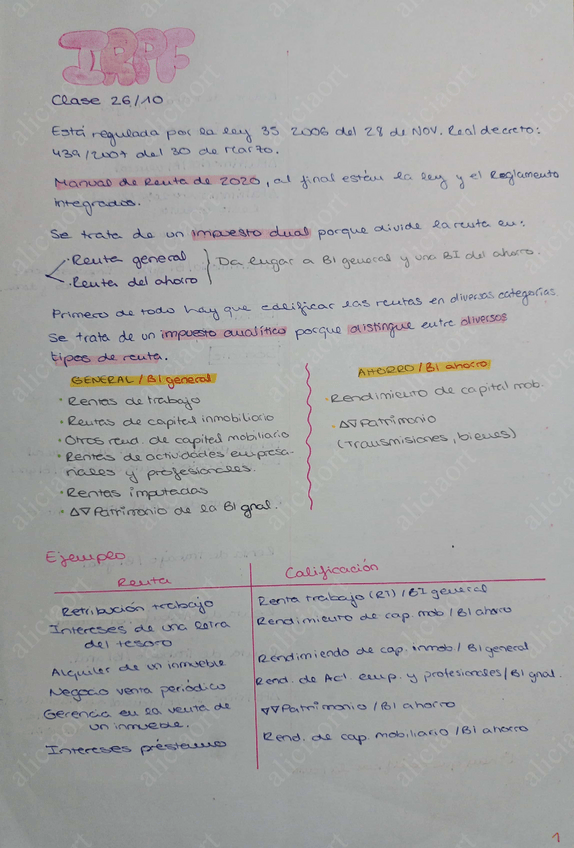 IRPF
Clase 26/10
Está regulada por la ley 35 2006 del 28 de NOV. Real decreto:
439/2007 del 30 de Marzo.
Manual de Renta de 2020, al final están la ley y el Reglamento
integrados.
Se trata de un impuesto dual porque divide la renta en:
· Renta general
· Renta del ahorro
Da lugar a BI general y una BI del ahorro.
Primero de todo hay que calificar las rentas en diversas categorías.
Se trata de un impuesto analítico porque distingue entre diversos
tipos de renta.
GENERAL / BI general
· Rentas de trabajo
· Rentas de capital inmobiliario
· Otros rend. de capital mobiliario
· Rentas de actividades empresa-
riales y profesionales.
· Rentas imputadas
· Δ∇ Patrimonio de la BI gnal.
AHORRO / BI ahorro
· Rendimiento de capital mob.
· Δ∇ Patrimonio
(Transmisiones, bienes)
Ejemplo
Renta
Calificación
Retribución trabajo
Renta trabajo (RT) / BI general
Intereses de una letra
del tesoro
Rendimiento de cap. mob / BI ahorro
Alquiler de un inmueble
Rendimiendo de cap. inmob / BI general
Negocio venta periódico
Rend. de Act. emp. y profesionales / BI gnal.
Gerencia en la venta de
un inmueble.
∇∇ Patrimonio / BI ahorro
Intereses préstamo
Rend. de cap. mobiliario / BI ahorro
1
aliciaort